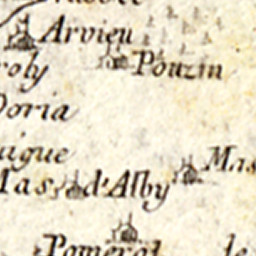 Arvieu
Pouzin
roly
Doria
aigue
Mas
Mas d'Alby
Pomerol
le